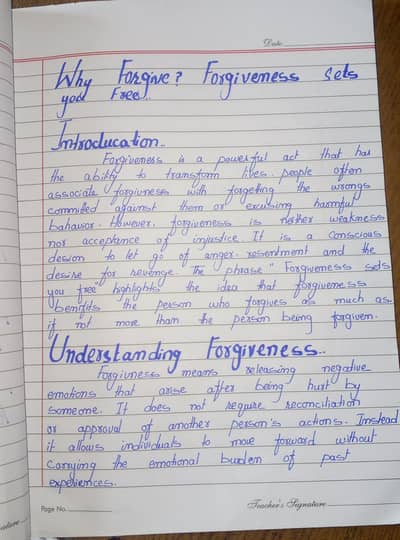 Date
Why Forgive? Forgiveness sets
you Free..
Introducation..
Forgiveness is a powerful act that has
the ability to transform lives. people often
associate forgiveness with forgeting the wrongs
commited against them or excusing harmful
bahavior. However, forgiveness is neither weakness
nor acceptance of injustice. It is a conscious
desion to let go of anger resentment and the
desire for revenge. The phrase "Forgiveness sets
you free" highlights the idea that forgiveness
benifits the person who forgives as much as
if not more than the person being forgiven.
Understanding Forgiveness..
Forgivness means releasing negative
emotions that arise after being hurt by
someome. It does not require reconciliation
or approval of another person's actions. Imstead
it allows individuals to move forward without
Carrying the emotional burden of past
experiences.
Page No.
Teacher's Signature